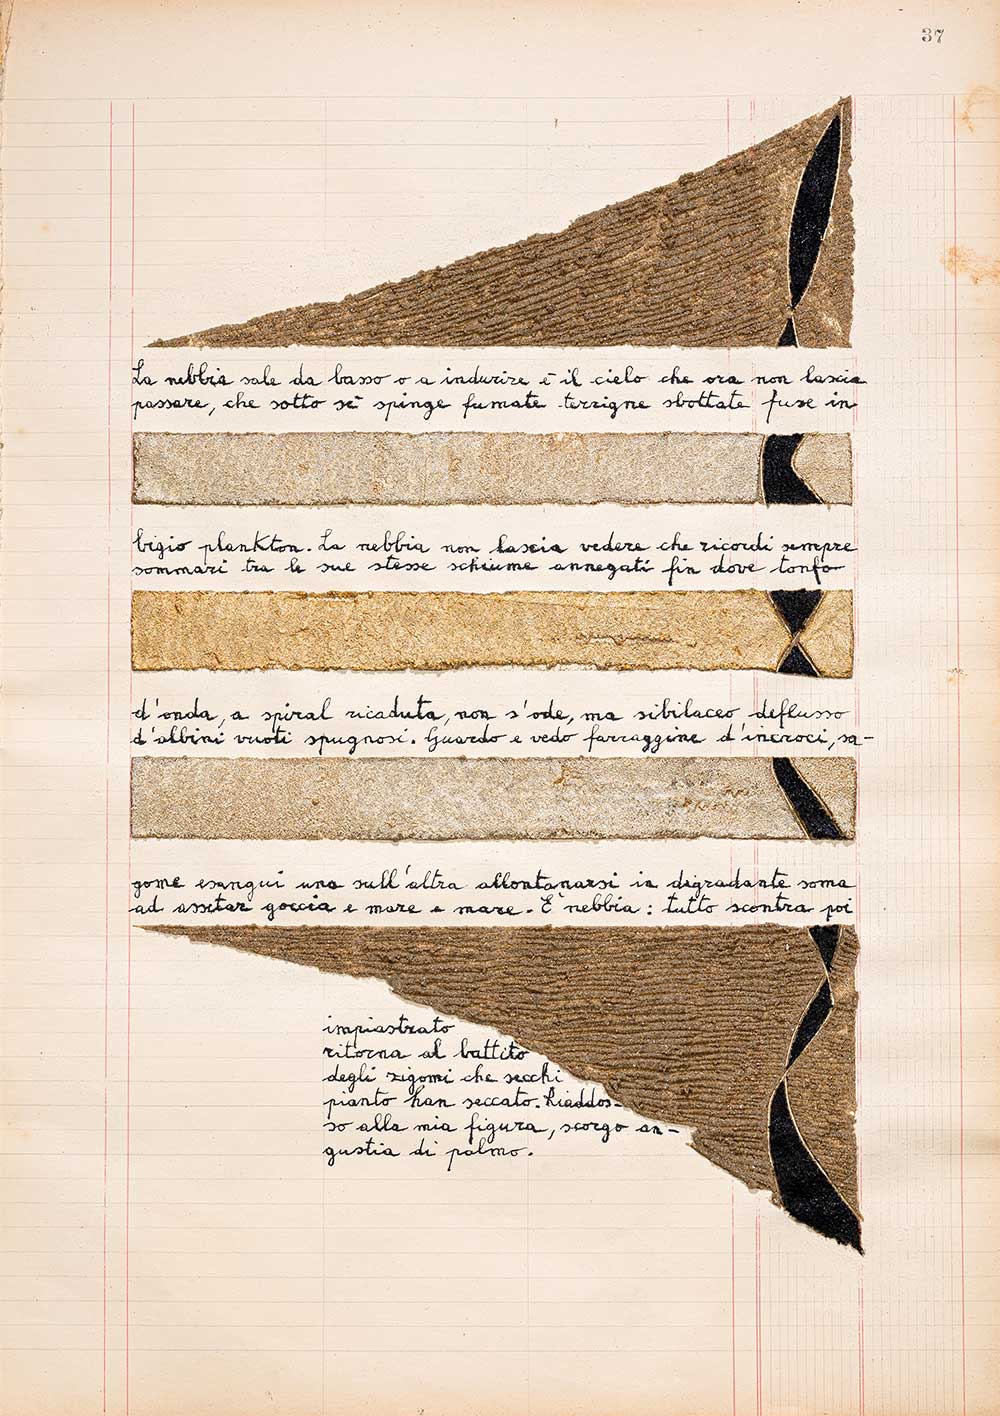 37
La nebbia sale da basso o a indurire è il cielo che ora non lascia
passare, che sotto sé spinge fumate terrigne sbottate fuse in
bigio plankton. La nebbia non lascia vedere che ricordi sempre
sommari tra le sue stesse schiume annegati fin dove tonfo
d'onda, a spiral ricaduta, non s'ode, ma sibilaceo deflusso
d'albini vuoti spugnosi. Guardo e vedo farraggine d'incroci, sa-
gome esangui una sull'altra allontanarsi in digradante soma
ad assetar goccia e mare e mare. È nebbia: tutto scontra poi
impiastrato
ritorna al battito
degli zigomi che secchi
pianto han seccato. Riaddos-
so alla mia figura, scorgo an-
gustia di palmo.